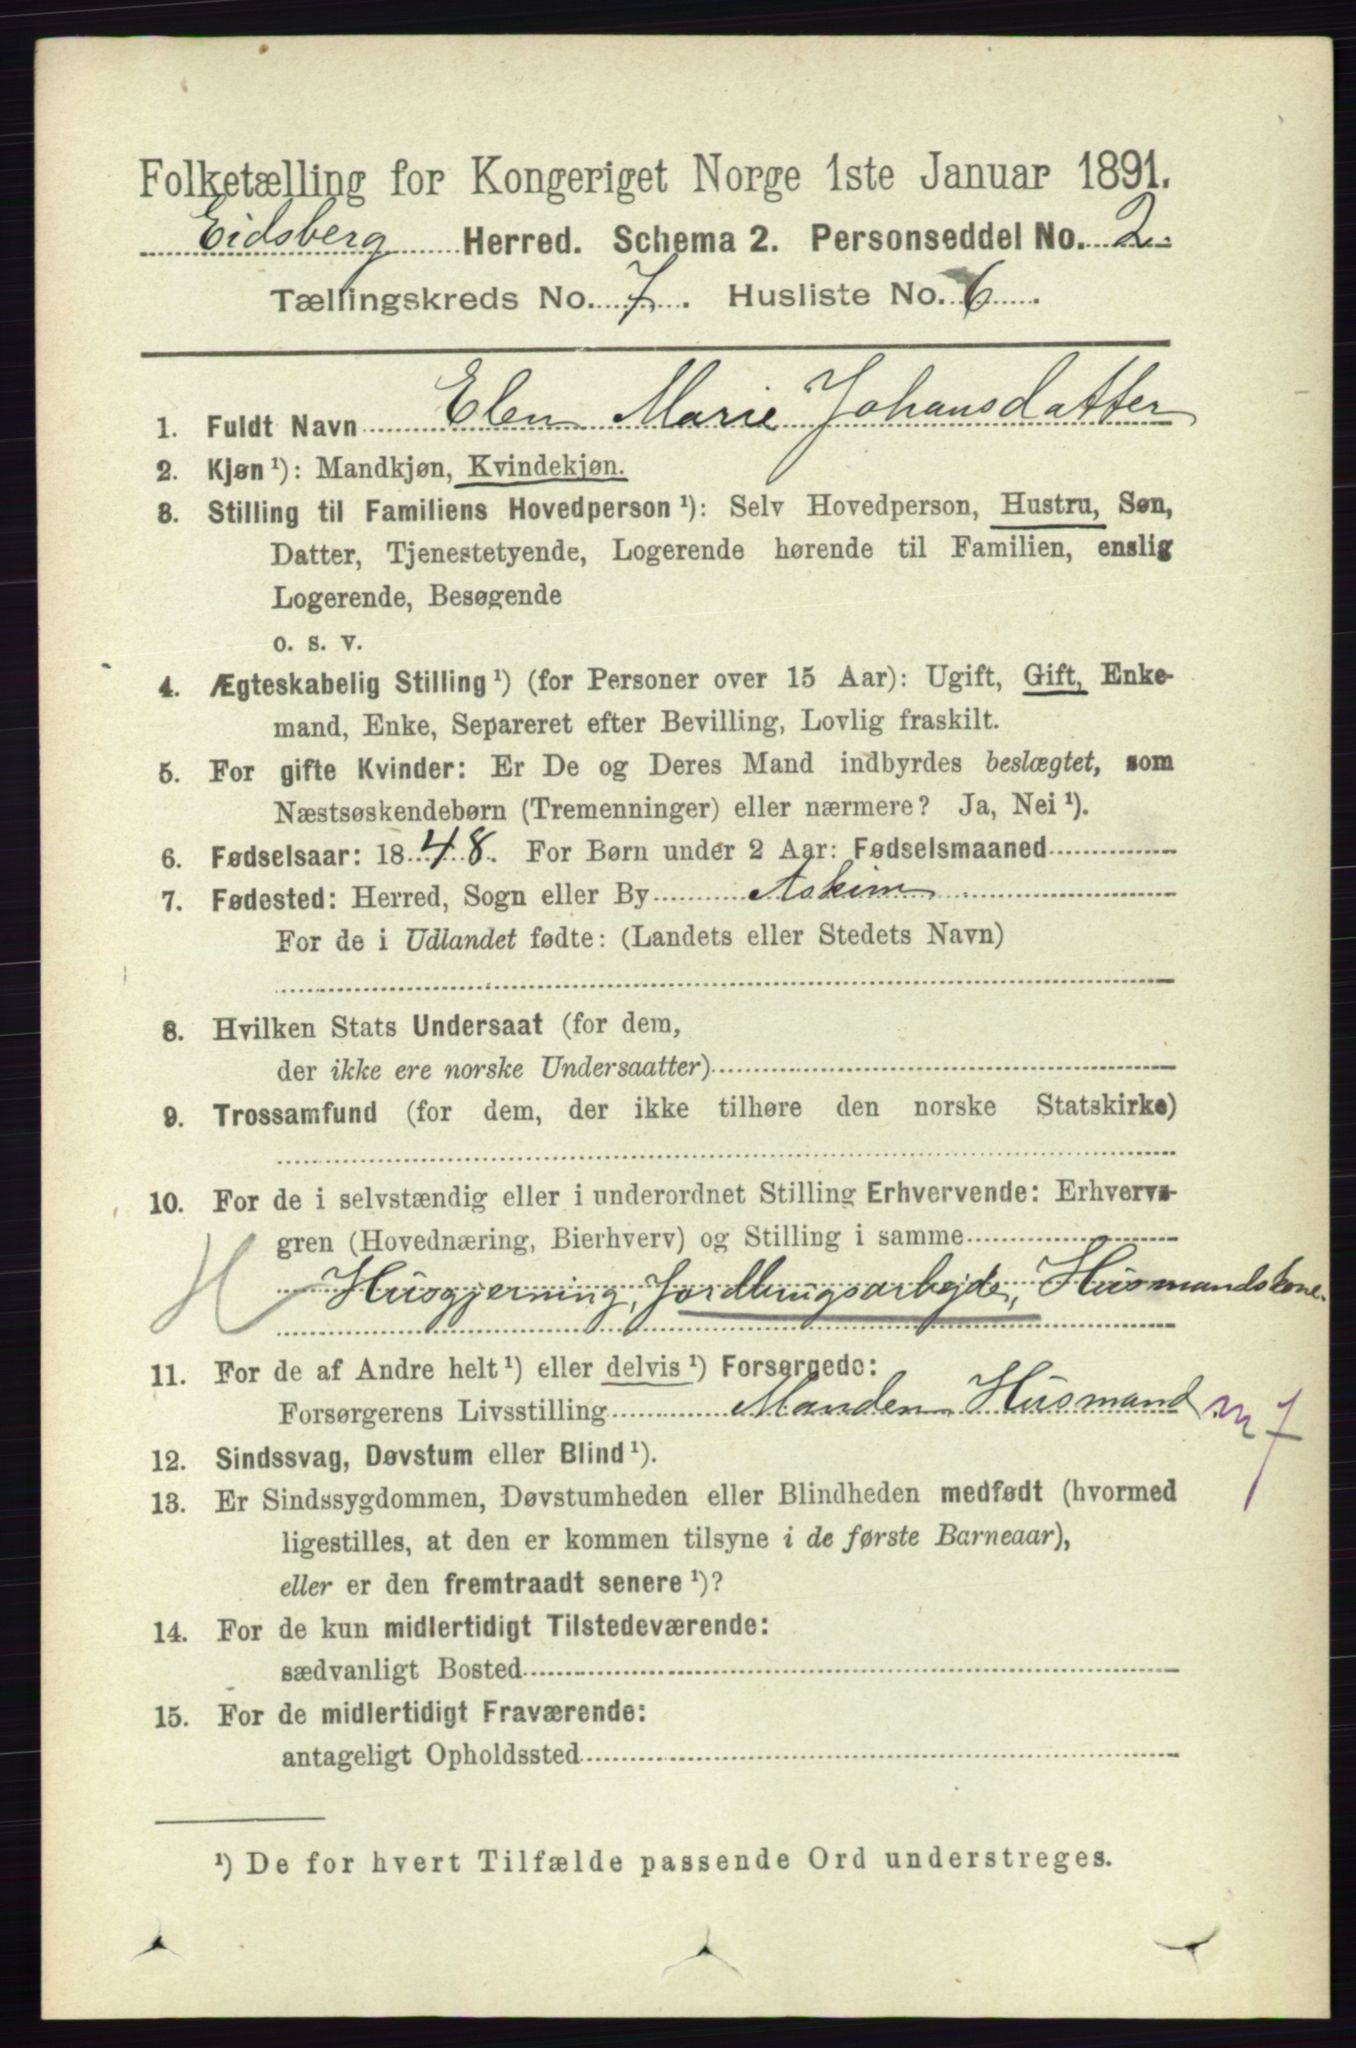 Folketælling for Kongeriget Norge 1ste Januar 1891.
Eidsberg Herred. Schema 2. Personseddel No. 2
Tællingskreds No. 7. Husliste No. 6.
1. Fuldt Navn Elen Marie Johansdatter
2. Kjøn ¹): Mandkjøn, Kvindekjøn.
3. Stilling til Familiens Hovedperson ¹): Selv Hovedperson, Hustru, Søn,
Datter, Tjenestetyende, Logerende hørende til Familien, enslig
Logerende, Besøgende
o. s. v.
4. Ægteskabelig Stilling ¹) (for Personer over 15 Aar): Ugift, Gift, Enke-
mand, Enke, Separeret efter Bevilling, Lovlig fraskilt.
5. For gifte Kvinder: Er De og Deres Mand indbyrdes beslægtet, som
Næstsøskendebørn (Tremenninger) eller nærmere? Ja, Nei ¹).
6. Fødselsaar: 1848. For Børn under 2 Aar: Fødselsmaaned
7. Fødested: Herred, Sogn eller By Askim
For de i Udlandet fødte: (Landets eller Stedets Navn)
8. Hvilken Stats Undersaat (for dem,
der ikke ere norske Undersaatter)
9. Trossamfund (for dem, der ikke tilhøre den norske Statskirke)
10. For de i selvstændig eller i underordnet Stilling Erhvervende: Erhvervs-
gren (Hovednæring, Bierhverv) og Stilling i samme
H Husgjerning, Jordbrugsarbejde, Husmandskone.
11. For de af Andre helt ¹) eller delvis ¹) Forsørgede:
Forsørgerens Livsstilling Manden Husmand m 7
12. Sindssvag, Døvstum eller Blind ¹).
13. Er Sindssygdommen, Døvstumheden eller Blindheden medfødt (hvormed
ligestilles, at den er kommen tilsyne i de første Barneaar),
eller er den fremtraadt senere ¹)?
14. For de kun midlertidigt Tilstedeværende:
sædvanligt Bosted
15. For de midlertidigt Fraværende:
antageligt Opholdssted
¹) De for hvert Tilfælde passende Ord understreges.